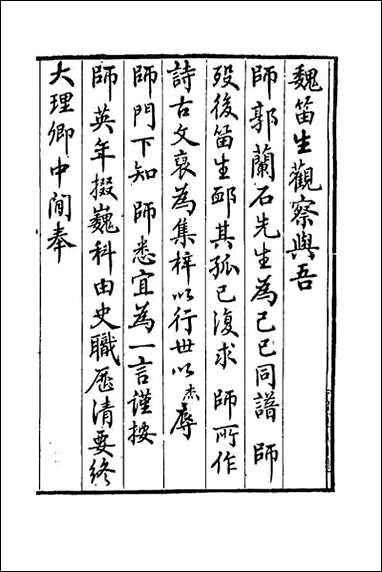 魏笛生觀察與吾
師郭蘭石先生為己巳同譜 師
歿後笛生卹其孤已復求 師所作
詩古文裒為集梓以行世以杰辱
師門下知 師悉宜為一言謹按
師英年掇巍科由史職歷清要終
大理卿中間奉